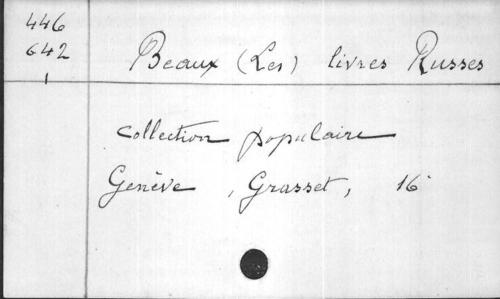 446
642
1
Beaux (Les) livres Russes
Collection populaire
Genève, Grasset, 16°